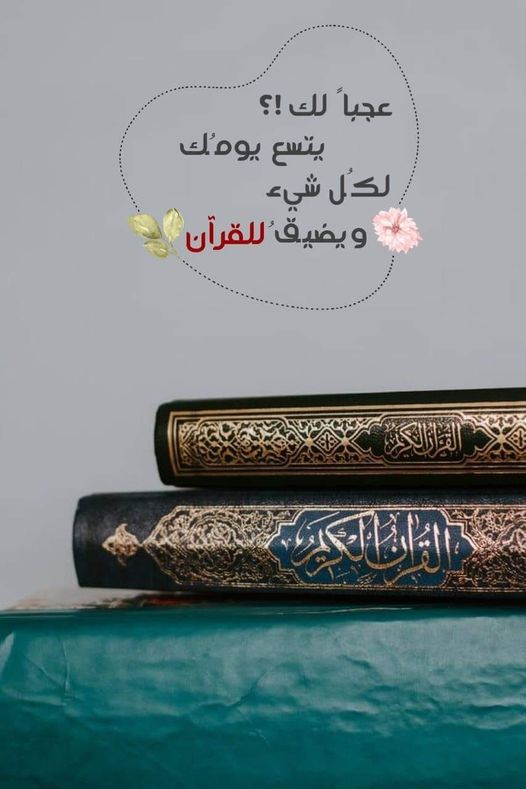 عجباً لك !؟
يتسع يومُك
لكُل شيء
ويضيقُ للقرآن
القرآن الكريم
القُرآنُ الكَرِيمُ